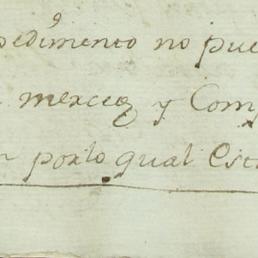 pedimento no pue
merced y Comp
n por lo qual Est